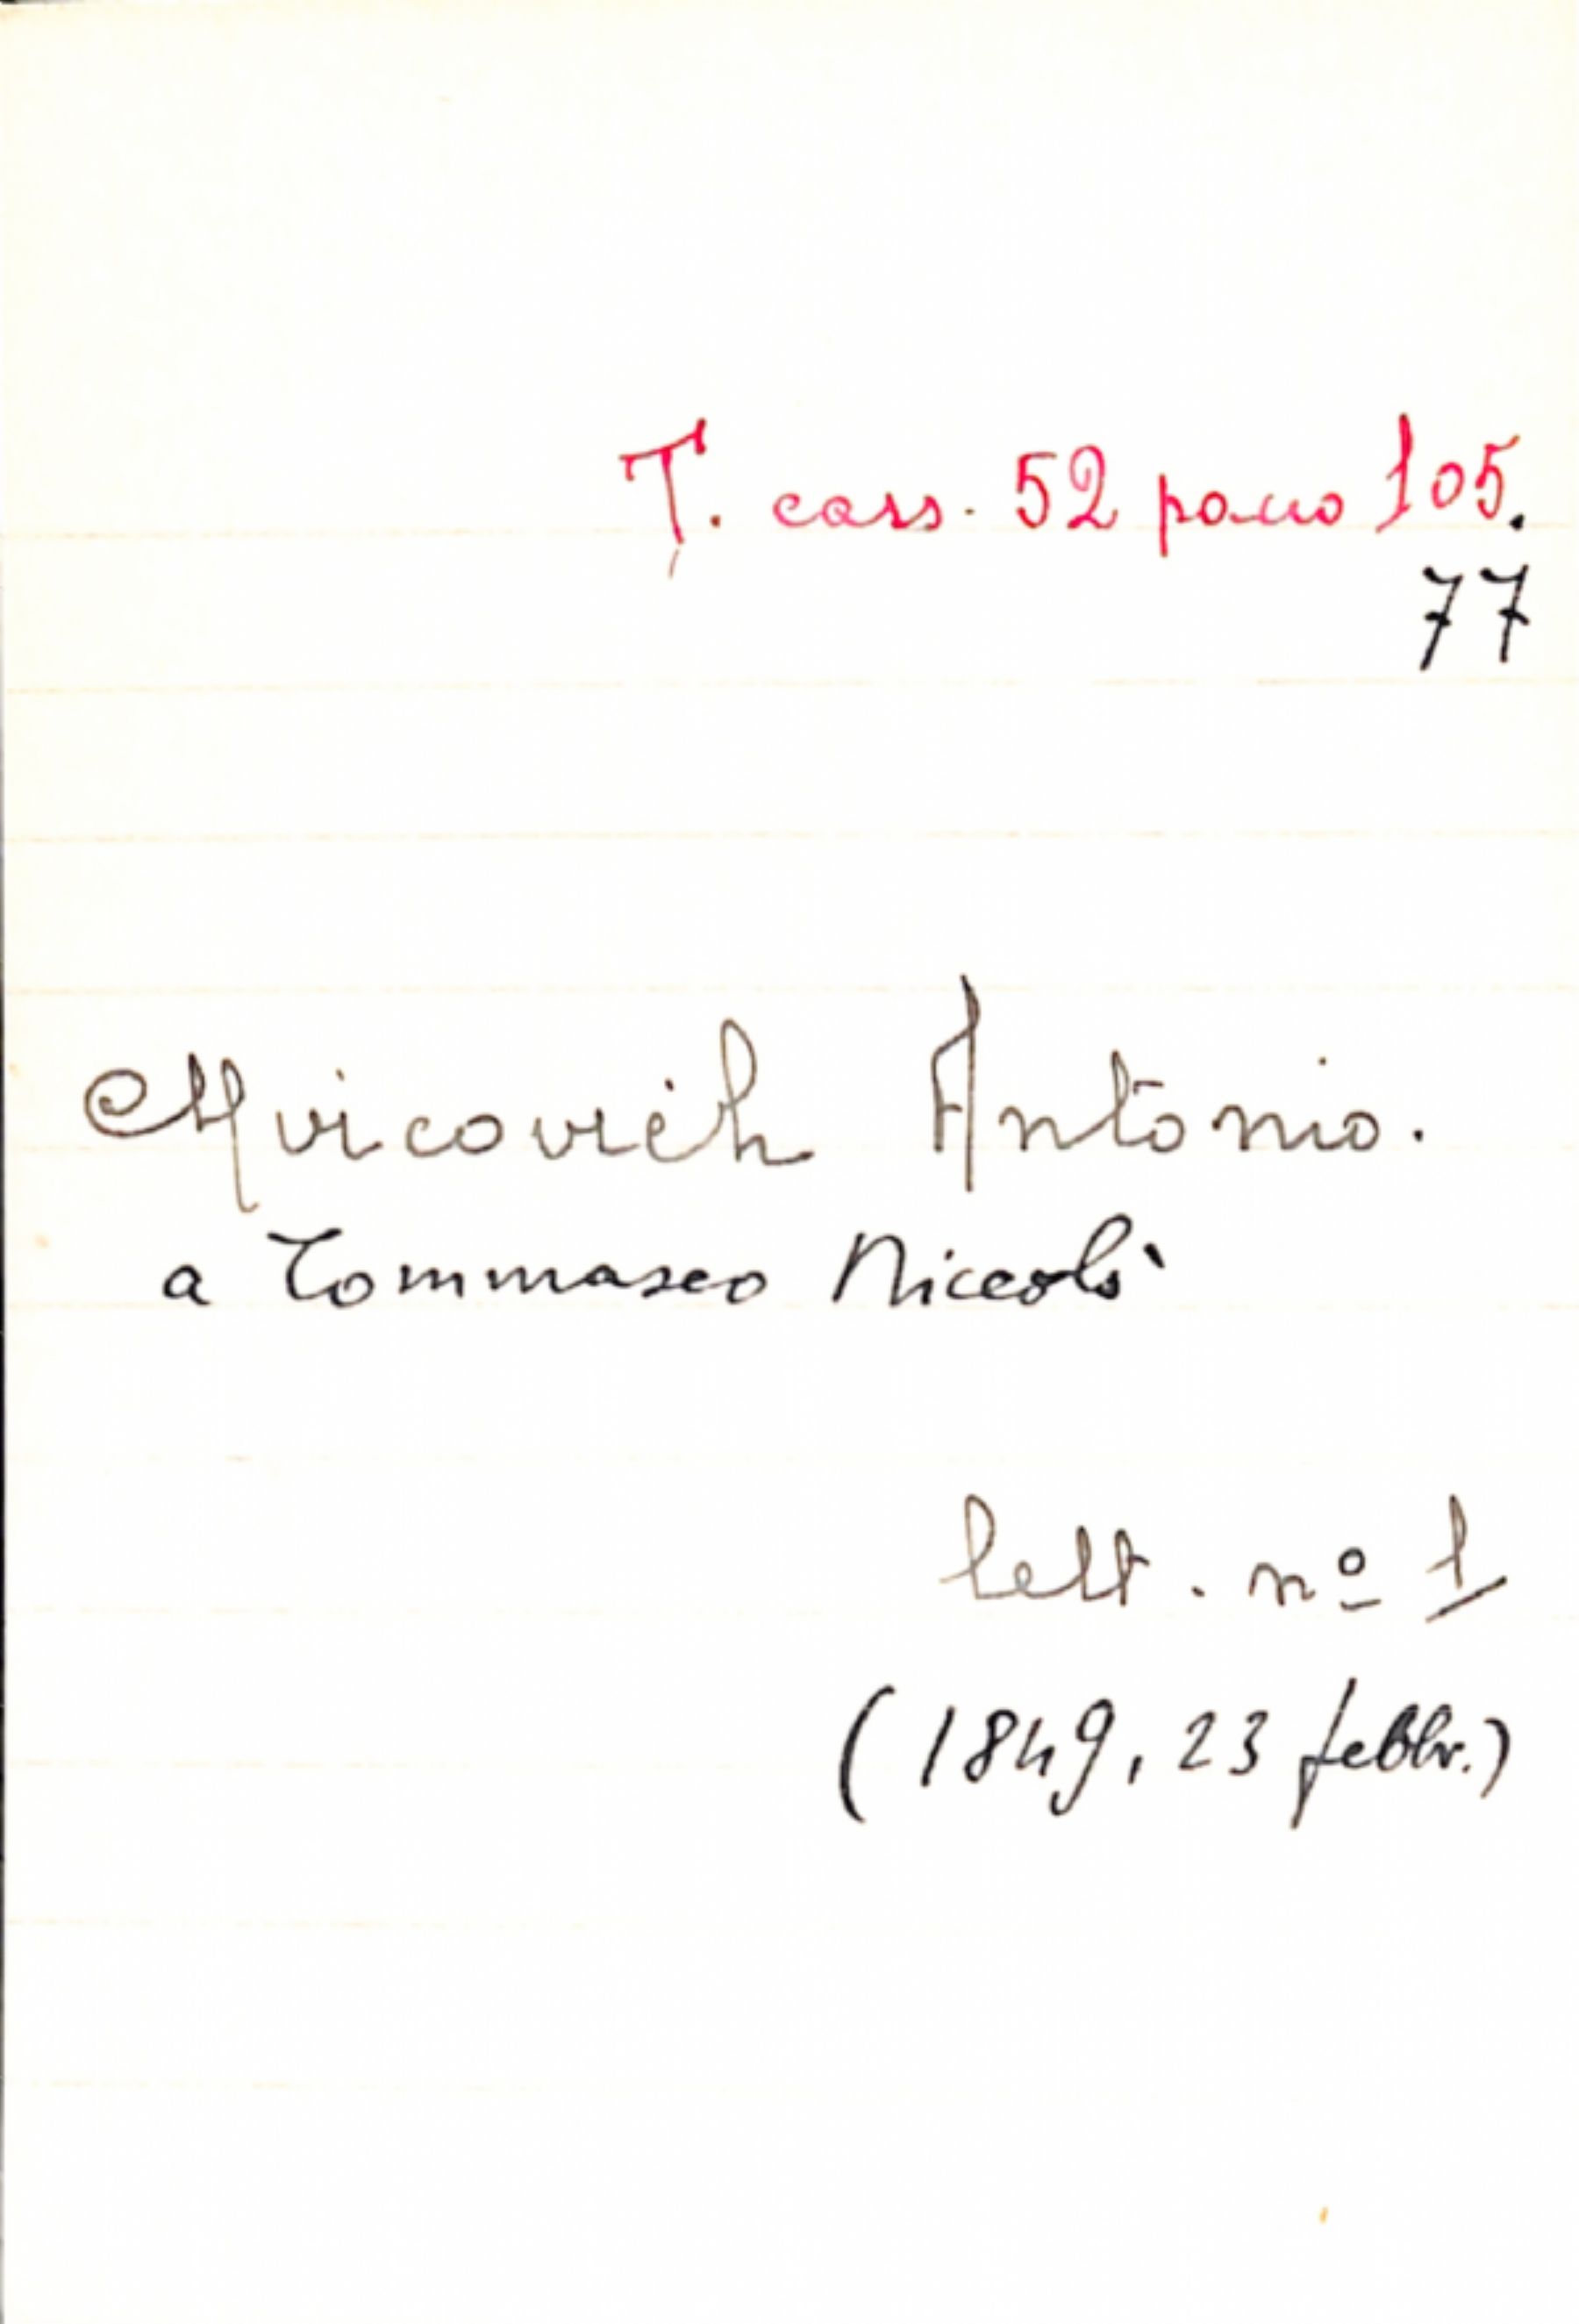 T. cass. 52 pacco 105.
77
Mvicovich Antonio.
a Tommaseo Niccolò
lett. nº 1
(1849, 23 febbr.)